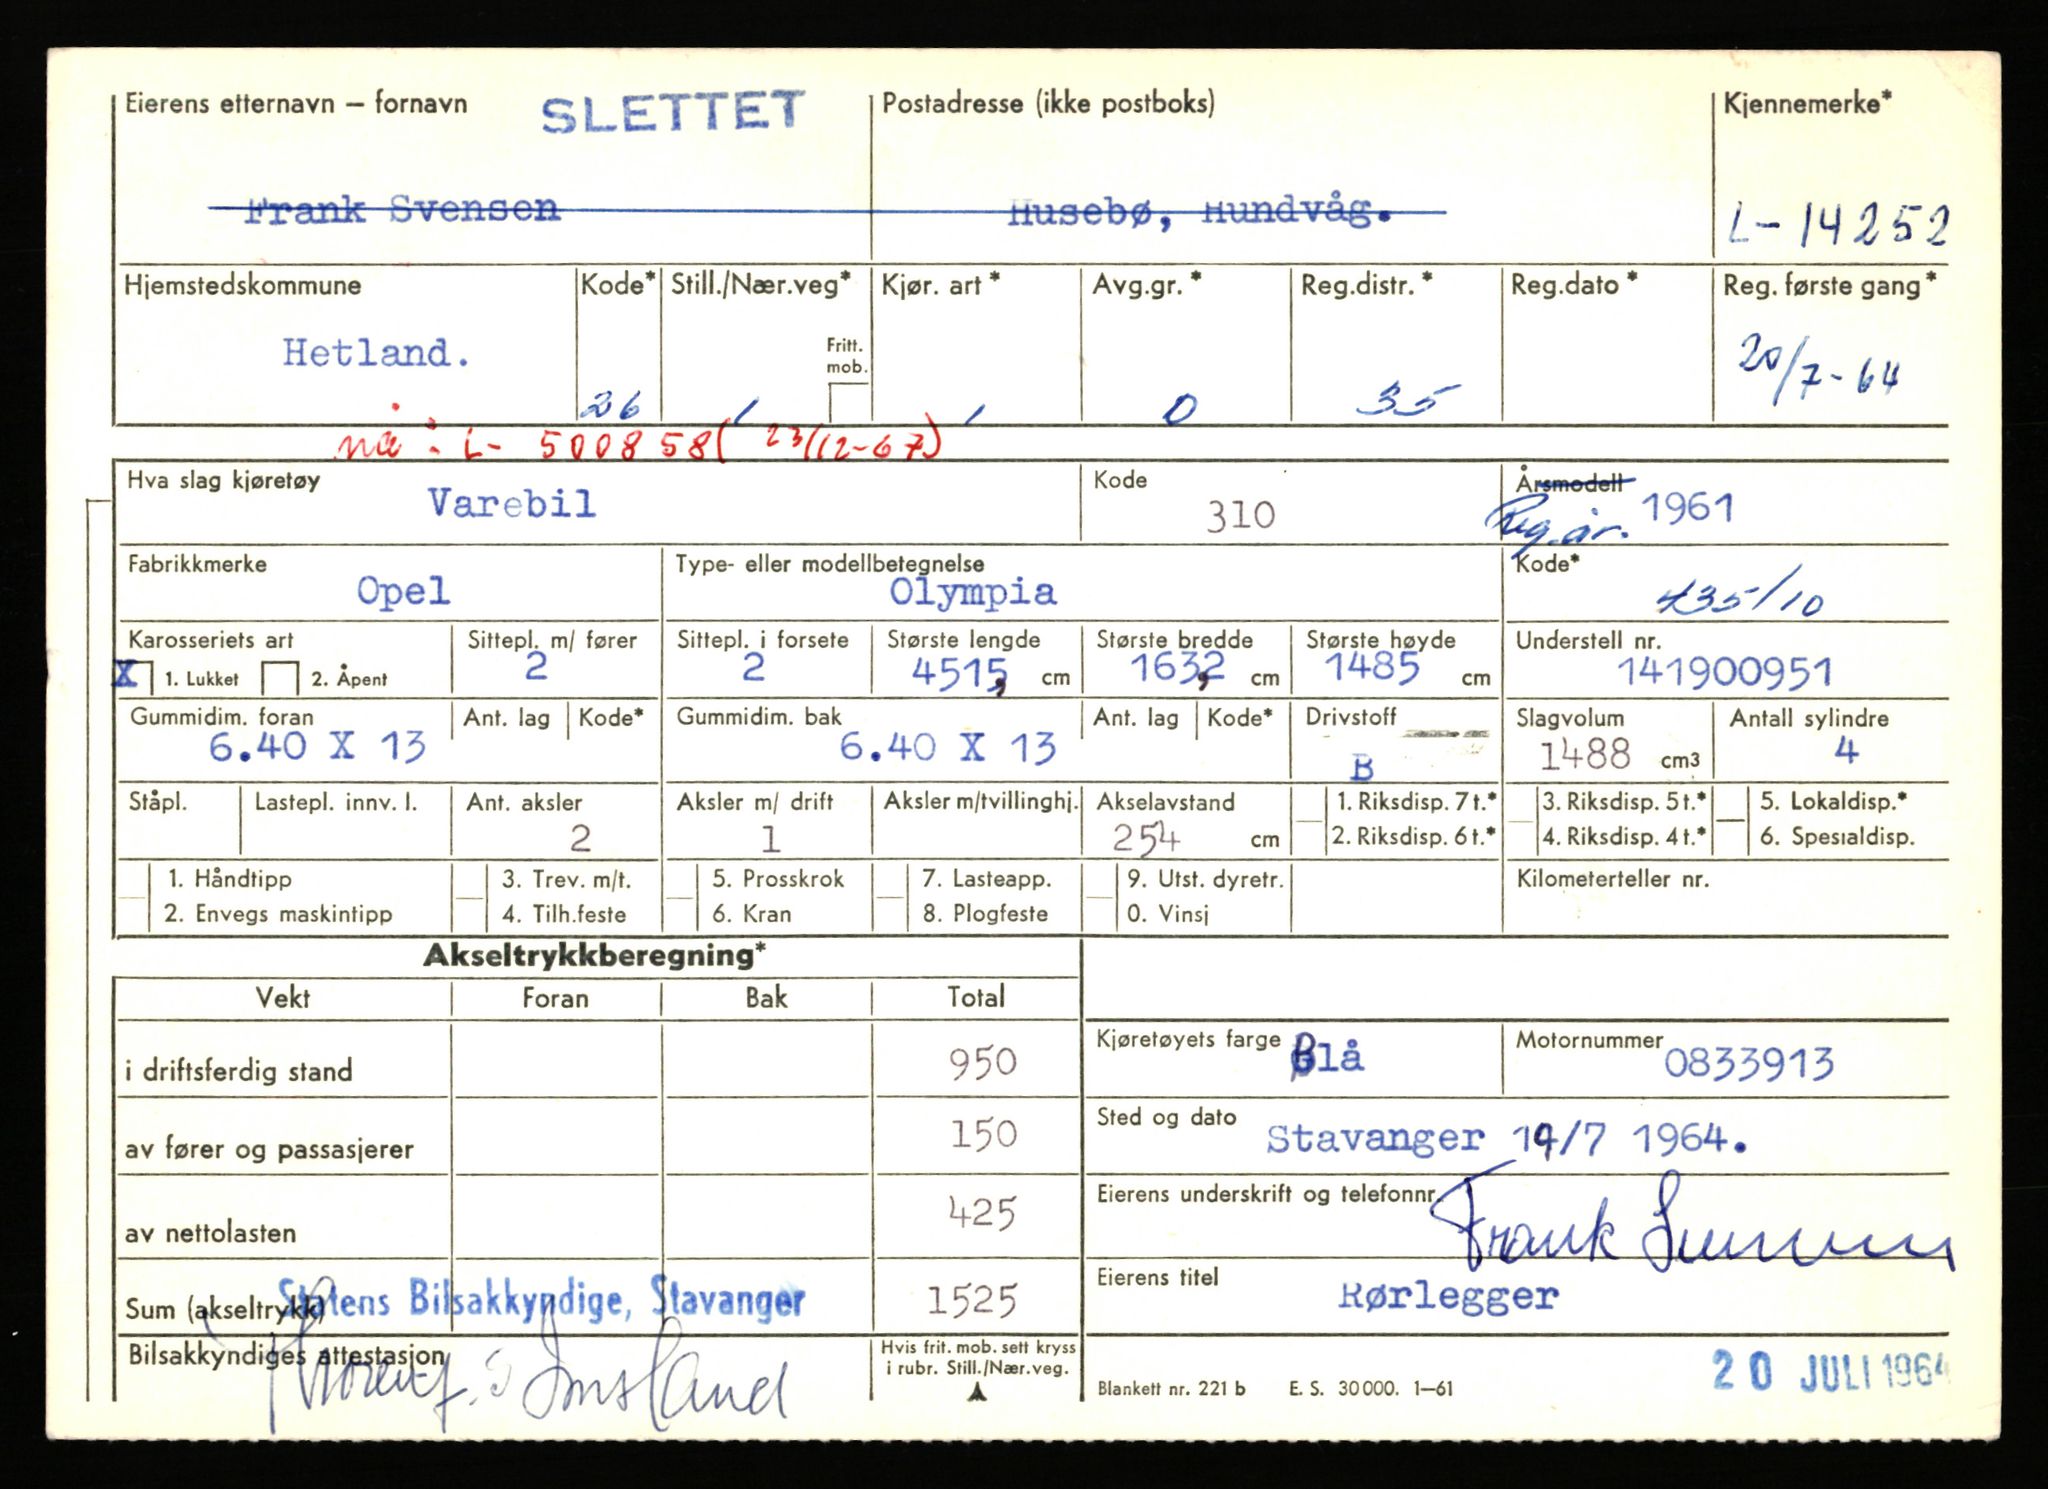 Eierens etternavn – fornavn SLETTET Postadresse (ikke postboks) Kjennemerke*
Frank Svensen Husebø, Hundvåg. L-14252
Hjemstedskommune Kode* Still./Nær.veg* Kjør. art* Avg.gr.* Reg.distr.* Reg.dato* Reg. første gang*
Hetland. 26 1 Fritt. mob. 1 0 35 20/7-64
nå: L- 500858 (23/12-67)
Hva slag kjøretøy Varebil Kode 310 Årsmodell Reg.år. 1961
Fabrikkmerke Opel Type- eller modellbetegnelse Olympia Kode* 435/10
Karosseriets art Sittepl. m/ fører Sittepl. i forsete Største lengde Største bredde Største høyde Understell nr.
X 1. Lukket 2. Åpent 2 2 4515, cm 163,2 cm 1485 cm 141900951
Gummidim. foran Ant. lag Kode* Gummidim. bak Ant. lag Kode* Drivstoff Slagvolum Antall sylindre
6.40 X 13 6.40 X 13 B 1488 cm3 4
Ståpl. Lastepl. innv. l. Ant. aksler Aksler m/ drift Aksler m/tvillinghj. Akselavstand 1. Riksdisp. 7t.* 3. Riksdisp. 5t.* 5. Lokaldisp.*
2 1 254 cm 2. Riksdisp. 6t.* 4. Riksdisp. 4t.* 6. Spesialdisp.
1. Håndtipp 3. Trev. m/t. 5. Prosskrok 7. Lasteapp. 9. Utst. dyretr. Kilometerteller nr.
2. Envegs maskintipp 4. Tilh.feste 6. Kran 8. Plogfeste 0. Vinsj
Akseltrykkberegning*
Vekt Foran Bak Total
i driftsferdig stand 950 Kjøretøyets farge Blå Motornummer 0833913
av fører og passasjerer 150 Sted og dato Stavanger 19/7 1964.
av nettolasten 425 Eierens underskrift og telefonnr. Frank Svensen
Sum (akseltrykk) Statens Bilsakkyndige, Stavanger 1525 Eierens titel Rørlegger
Bilsakkyndiges attestasjon Hvis frit. mob. sett kryss i rubr. Still./Nær.veg.
Blankett nr. 221 b E. S. 30000. 1–61 20 JULI 1964